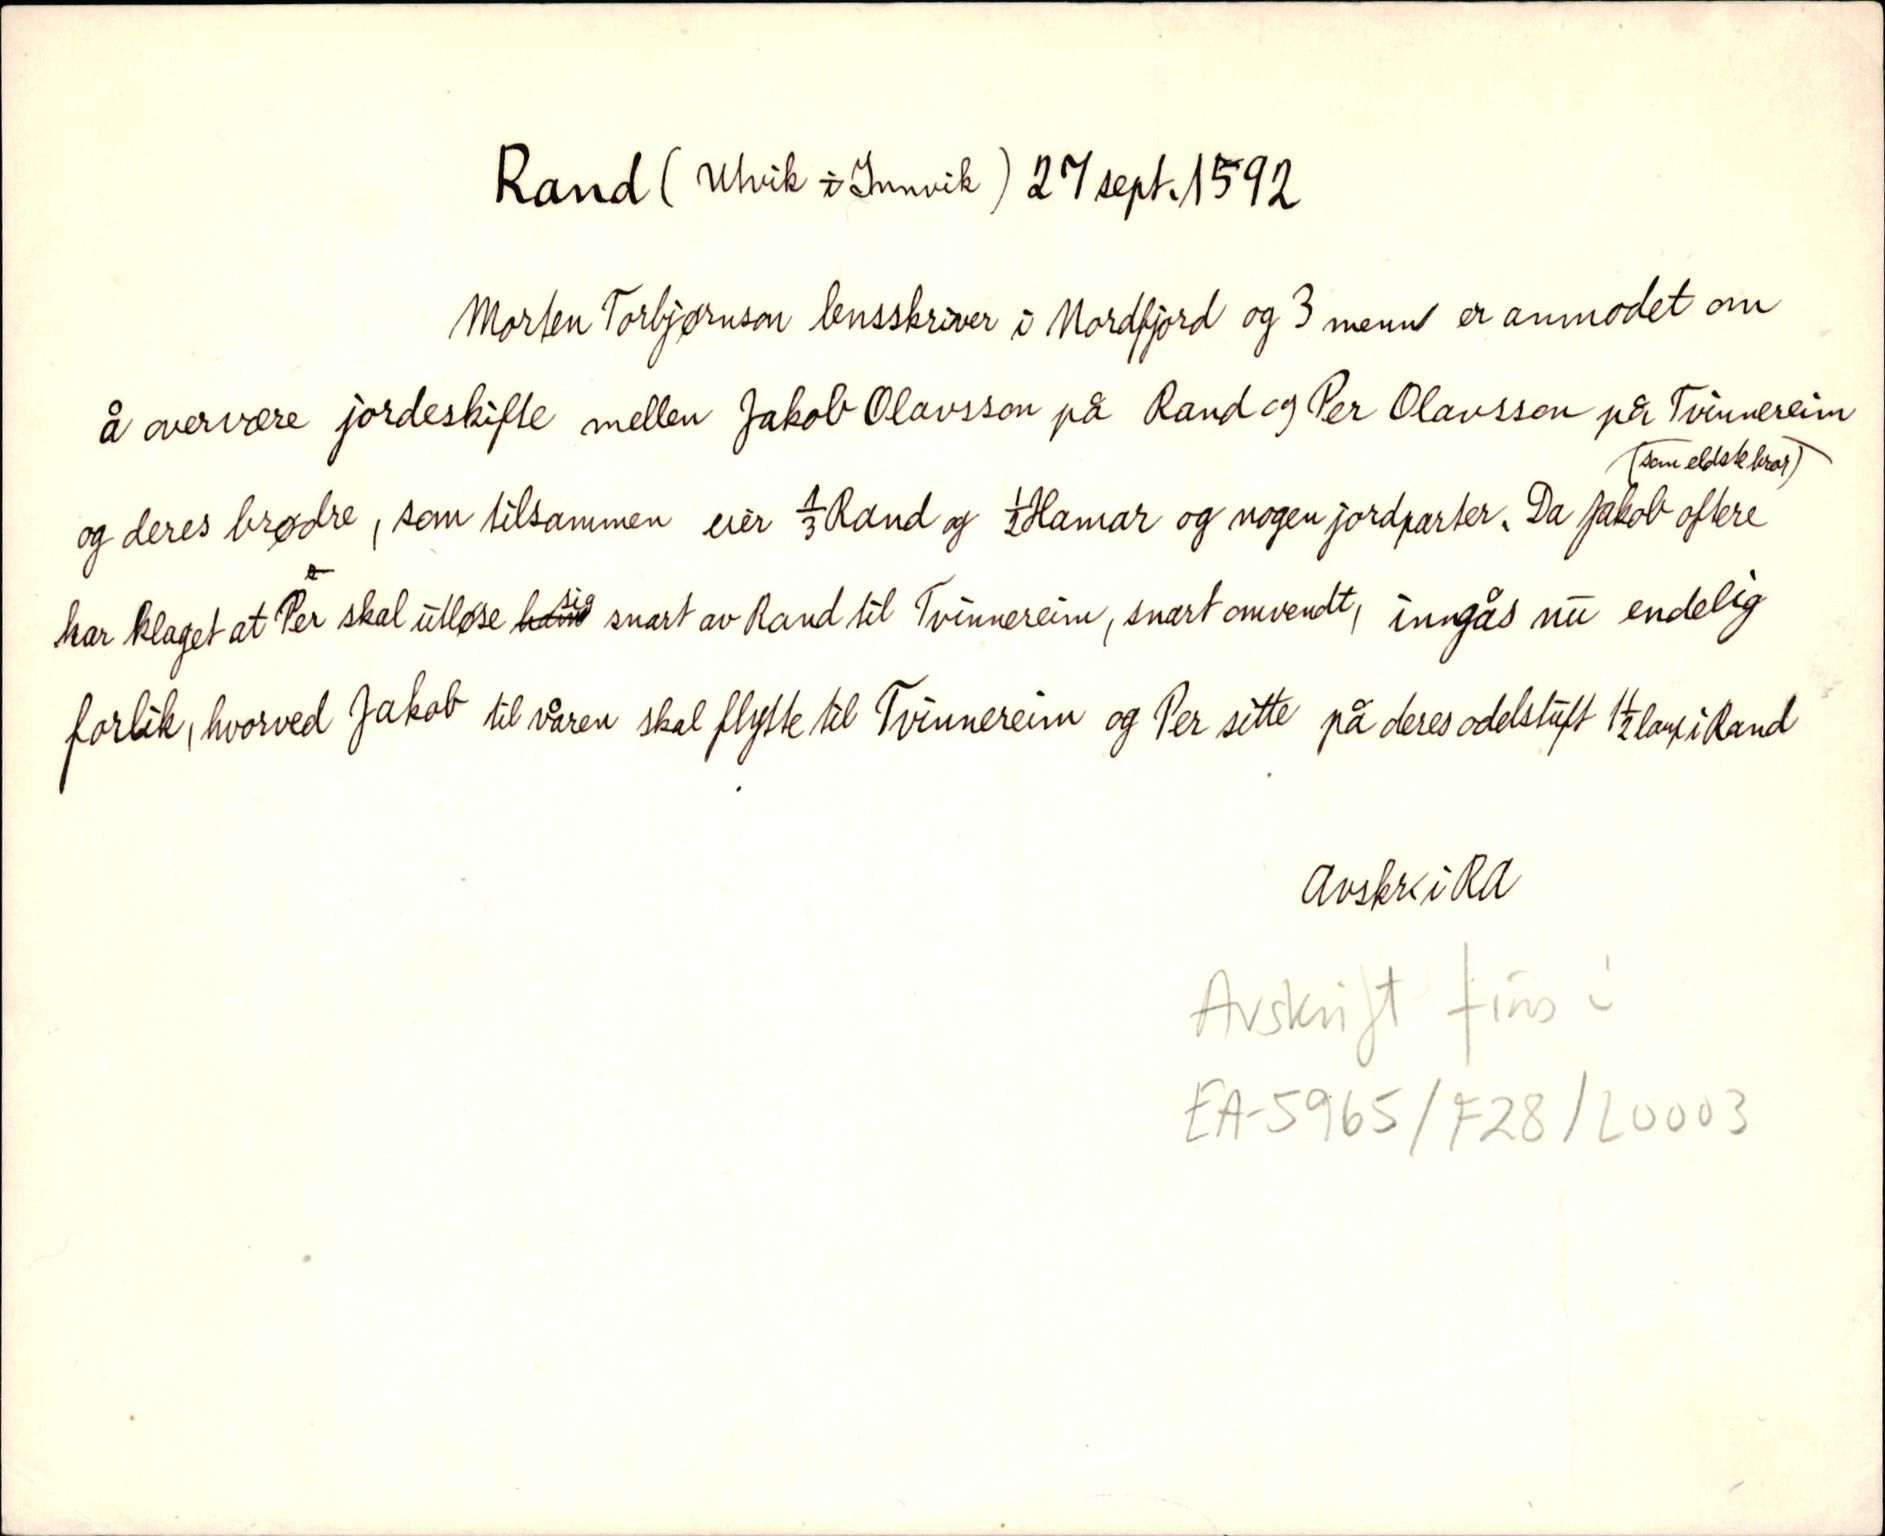 Rand (Utvik i Innvik) 27 sept. 1592
Morten Torbjørnson lensskriver i Nordfjord og 3 menn er anmodet om
å overvære jordeskifte mellen Jakob Olavsson på Rand og Per Olavsson på Tvinnereim
(som eldste bror)
og deres brødre, som tilsammen eier 1/3 Rand og 1/2 Hamar og nogen jordparter. Da Jakob oftere
har klaget at Per skal utløse sig snart av Rand til Tvinnereim, snart omvendt, inngås nu endelig
forlik, hvorved Jakob til våren skal flytte til Tvinnereim og Per sitte på deres odelstuft 1 1/2 laup i Rand
Avskr i RA
Avskrift fins i
EA-5965/F28/L0003